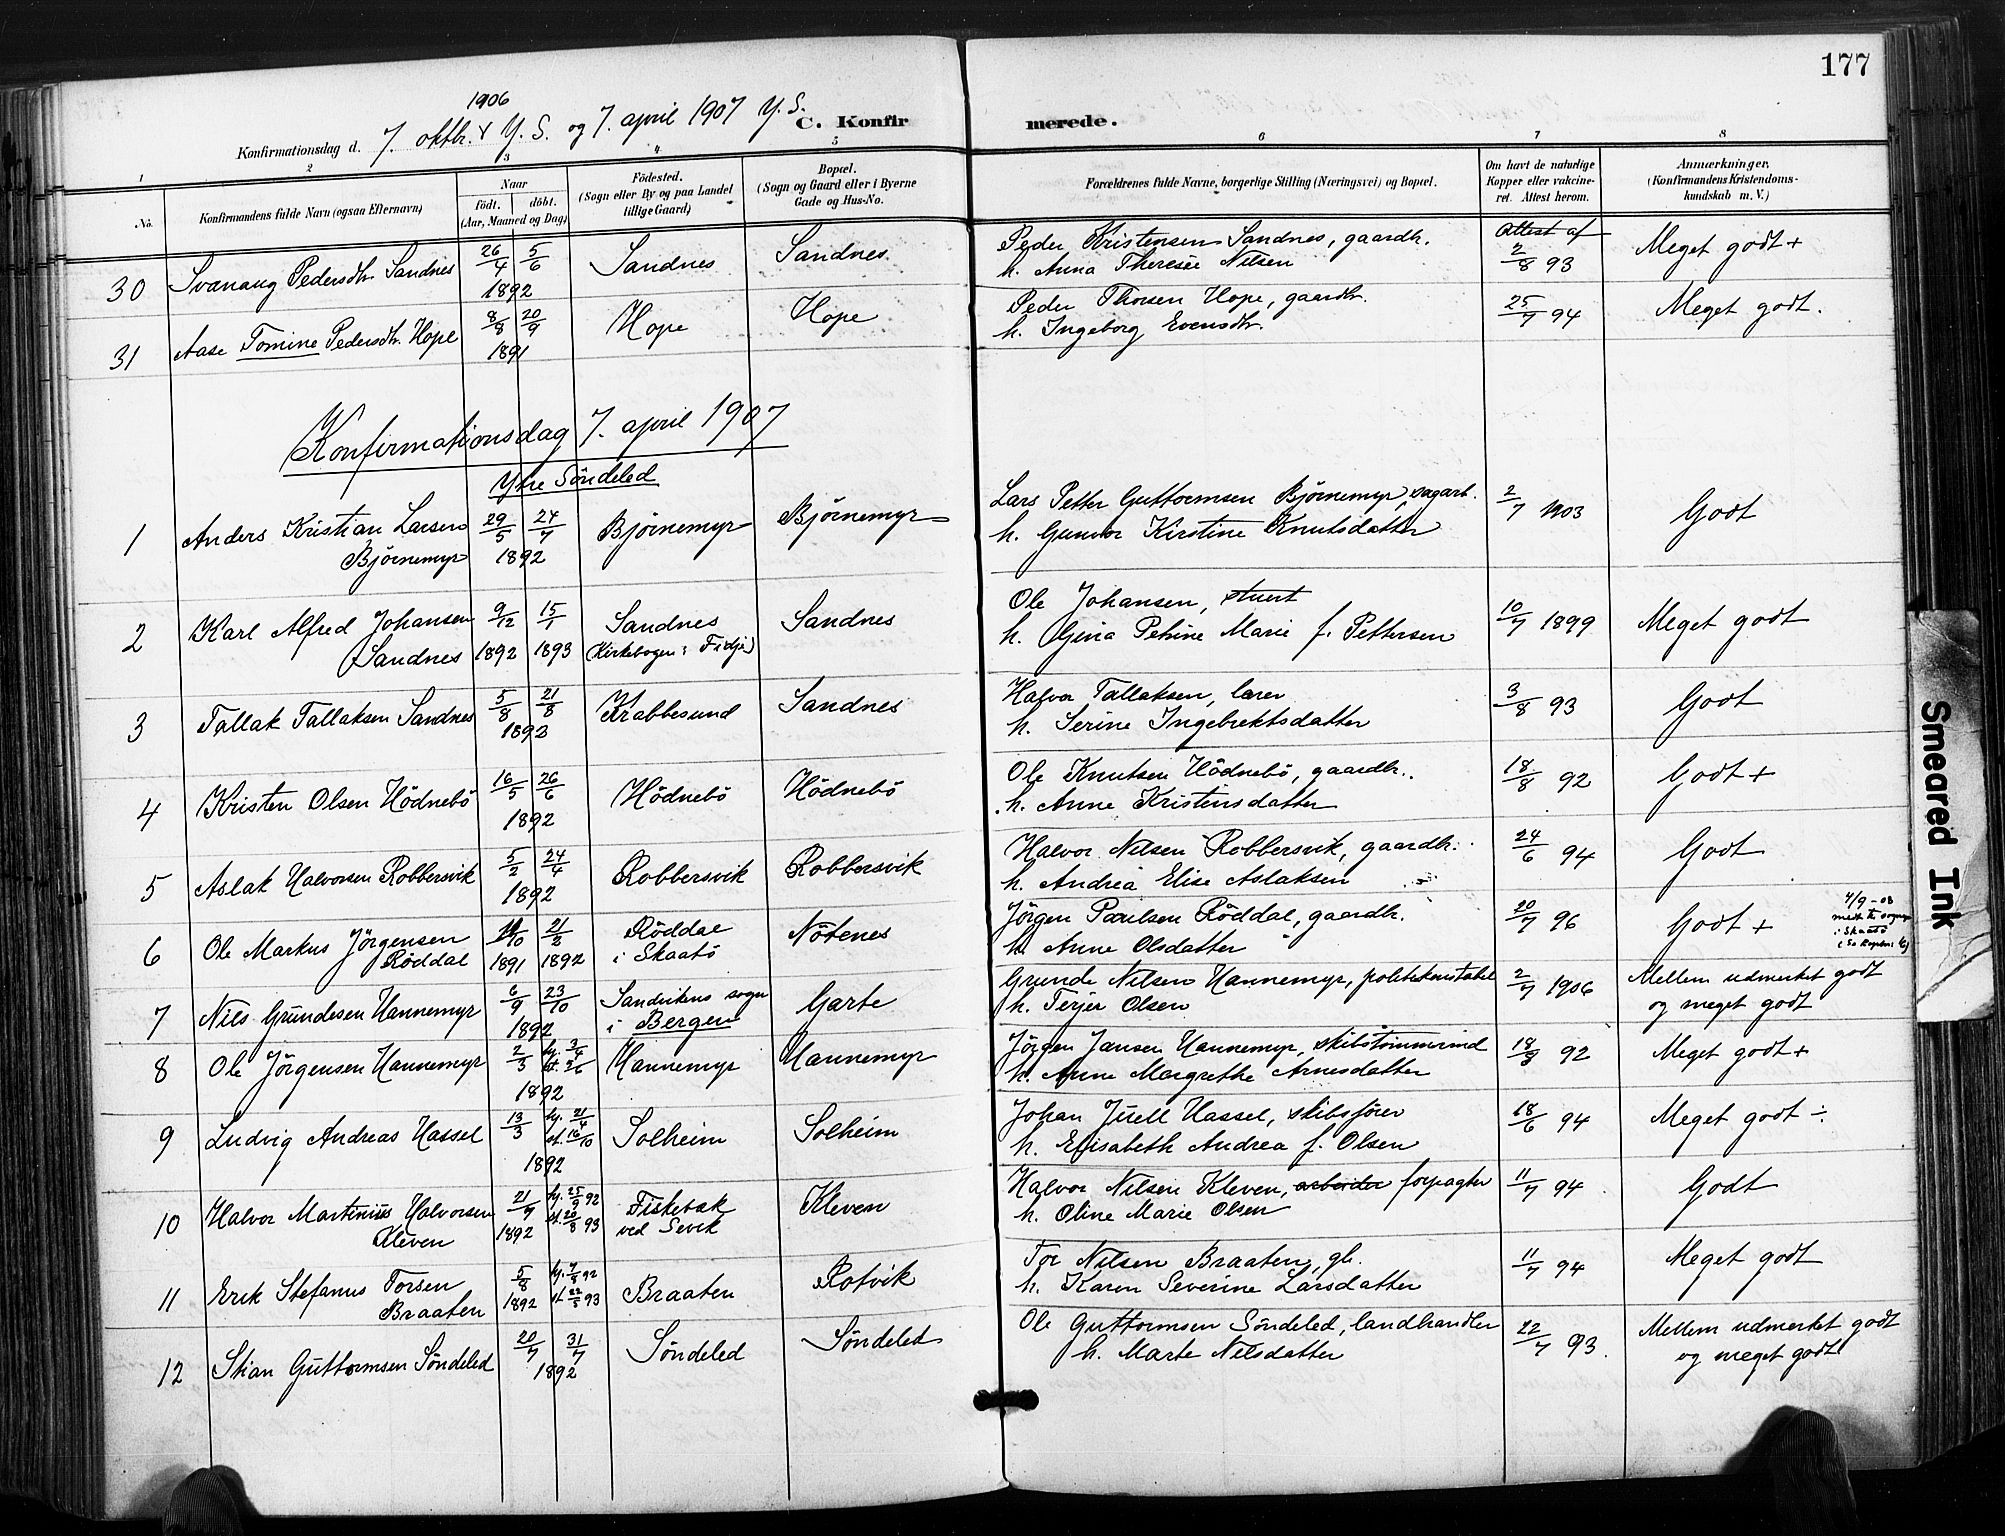 177
1906
Konfirmationsdag d. 7. oktbr. Y. S. og 7. april 1907 Y. S.
C. Konfirmerede.
1 2 3 4 5 6 7 8
No.
Konfirmandens fulde Navn (ogsaa Efternavn)
Naar
født. döbt.
(Aar, Maaned og Dag)
Födested.
(Sogn eller By og paa Landet
tillige Gaard)
Bopæl.
(Sogn og Gaard eller i Byerne
Gade og Hus-No.
Forældrenes fulde Navne, borgerlige Stilling (Næringsvei) og Bopæl.
Om havt de naturlige
Kopper eller vakcine-
ret. Attest herom.
Anmærkninger.
(Konfirmandens Kristendoms-
kundskab m. V.)
30 Svanaug Pedersdtr. Sandnes 26/4 5/6 1892 Sandnes Sandnes
Peder Kristensen Sandnes, gaardbr.
h. Anna Theresie Nilsen
Attest af
2/8 93
Meget godt +
31 Aase Tomine Pedersdtr. Hope 8/8 20/9 1891 Hope Hope
Peder Thorsen Hope, gaardbr.
h. Ingeborg Evensdtr.
25/7 94
Meget godt.
Konfirmationsdag 7. april 1907
Ytre Söndeled
1 Anders Kristian Larsen
Bjørnemyr
29/5 24/7 1892 Bjørnemyr Bjørnemyr
Lars Petter Guttormsen Bjørnemyr, sagarb.
h. Gunvor Kirstine Knutsdatter
2/7 1903
Godt
2 Karl Alfred Johansen
Sandnes
9/12 1892 15/1 1893
Sandnes
(Kirkebogen: Fidje)
Sandnes
Ole Johansen, stuert
h. Gina Petrine Marie f. Pettersen
10/7 1899
Meget godt
3 Tallak Tallaksen Sandnes 5/8 21/8 1892 Krabbesund Sandnes
Halvor Tallaksen, lærer
h. Serine Ingebrektsdatter
3/8 93
Godt
4 Kristen Olsen Hödnebö 16/5 26/6 1892 Hödnebö Hödnebö
Ole Knutsen Hödnebö, gaardbr.
h. Anne Kristensdatter
18/8 92
Godt +
5 Aslak Halvorsen Robbersvik 5/2 24/4 1892 Robbersvik Robbersvik
Halvor Nilsen Robbersvik, gaardbr.
h. Andrea Elise Aslaksen
24/6 94
Godt
6 Ole Markus Jörgensen
Röddal
1891 21/2 1892
Röddal
i Skaatö
Nötenes
Jörgen Paulsen Röddal, gaardbr.
h. Anne Olsdatter
20/7 96
Godt +
4/9-03
i Skaatö
7 Nils Grundesen Hannemyr 6/9 23/10 1892
Sandvikens sogn
i Bergen
Garte
Grunde Nilsen Hannemyr, politikonstabel
h. Terjer Olsen
2/7 1906
Mellem udmerket godt
og meget godt
8 Ole Jörgensen Hannemyr 2/3 hj. 3/4 st. 26/6 1892 Hannemyr Hannemyr
Jörgen Jansen Hannemyr, skibstömmermd
h. Anne Margrethe Arnesdatter
18/8 92
Meget godt +
9 Ludvig Andreas Hassel 13/3 hj. 21/4 st. 16/10 1892 Solheim Solheim
Johan Juell Hassel, skibsförer
h. Elisabeth Andrea f. Olsen
18/6 94
Meget godt ÷
10 Halvor Martinius Halvorsen
Kleven
21/7 1892 hj. 25/9 92 st. 20/8 93
Fiskebæk
ved Sevik
Kleven
Halvor Nilsen Kleven, arbeider forpagter
h. Oline Marie Olsen
11/7 94
Godt
11 Erik Stefanus Torsen
Braaten
5/8 1892 hj. 7/8 92 st. 22/5 93
Braaten Rotvik
Tor Nilsen Braaten, gb.
h. Karen Severine Larsdatter
11/7 94
Meget godt
12 Stian Guttormsen Söndeled 20/7 31/7 1892 Söndeled Söndeled
Ole Guttormsen Söndeled, landhandler
h. Marte Nilsdatter
22/7 93.
Mellem udmerket godt
og meget godt
Smeared Ink